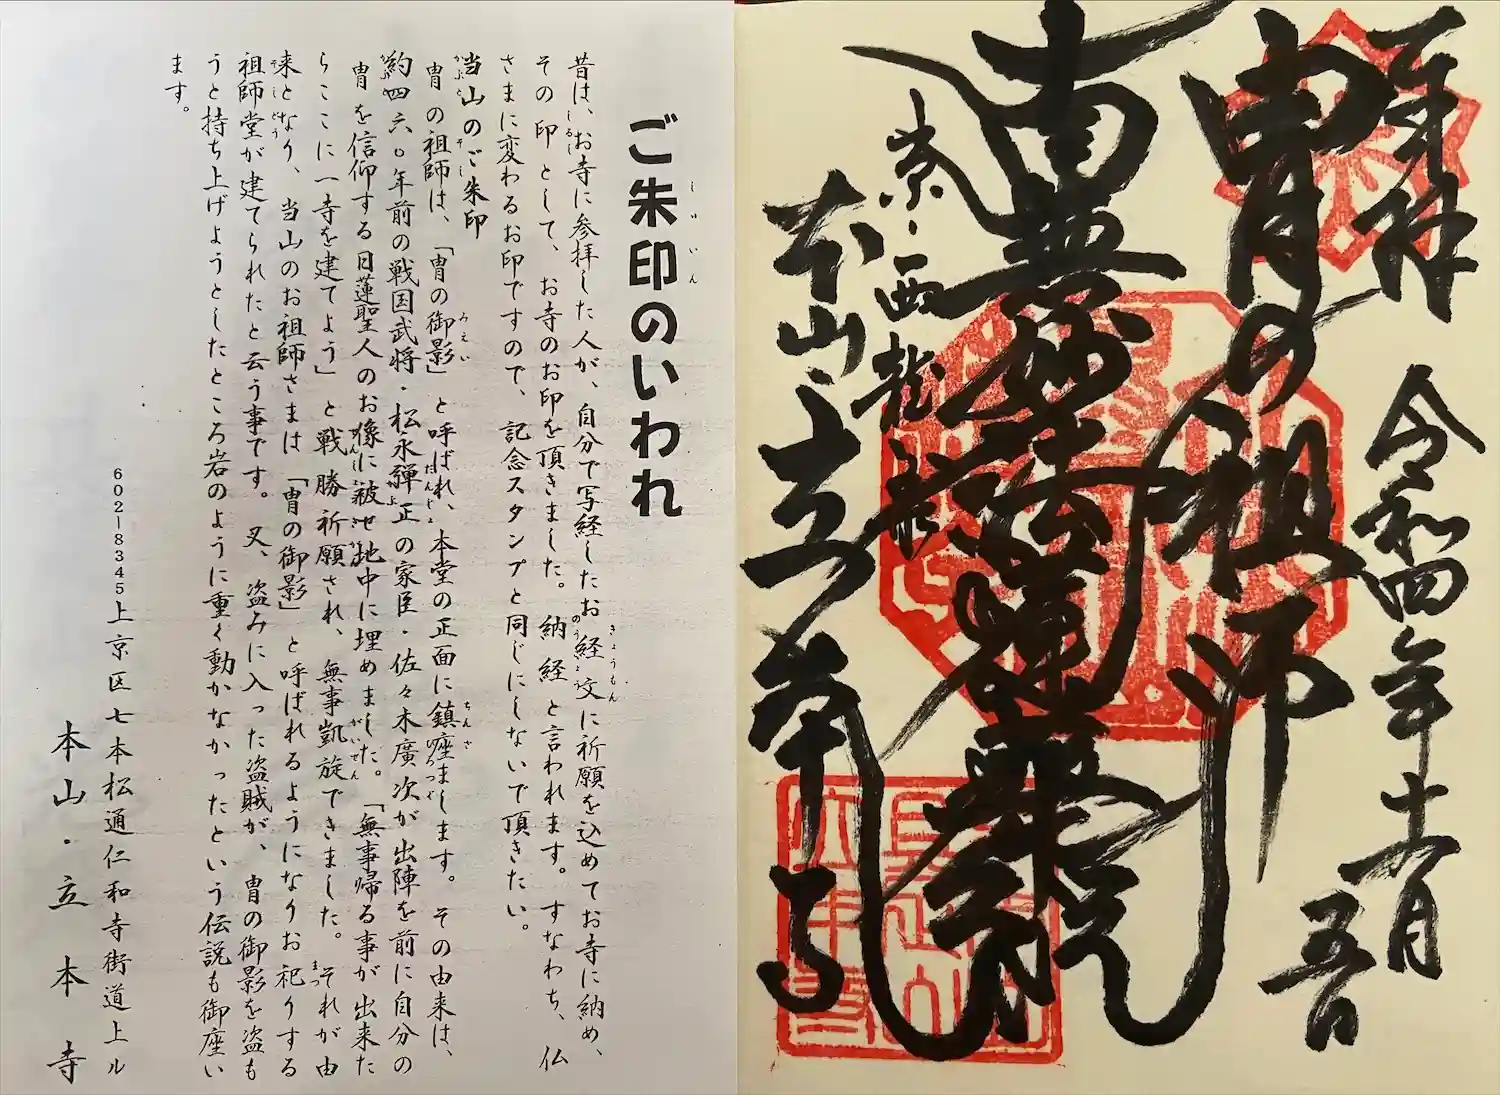 奉拝
令和四年十一月五日
冑の祖師
南無妙法蓮華経
京・西龍華
本山
立本寺
ご朱印のいわれ
昔は、お寺に参拝した人が、自分で写経したお経文に祈願を込めてお寺に納め、
その印として、お寺のお印を頂きました。納経と言われます。すなわち、仏
さまに変わるお印ですので、記念スタンプと同じにしないで頂きたい。
当山のご朱印
冑の祖師は、「冑の御影」と呼ばれ、本堂の正面に鎮座まします。その由来は、
約四六〇年前の戦国武将・松永彈正の家臣・佐々木廣次が出陣を前に自分の
冑を信仰する日蓮聖人のお像に被せ地中に埋めました。「無事帰る事が出来た
らここに一寺を建てよう」と戦勝祈願され、無事凱旋できました。それが由
来となり、当山のお祖師さまは「冑の御影」と呼ばれるようになりお祀りする
祖師堂が建てられたと云う事です。又、盗みに入った盗賊が、冑の御影を盗も
うと持ち上げようとしたところ岩のように重く動かなかったという伝説も御座い
ます。
602-8345上京区七本松通仁和寺街道上ル
本山・立本寺